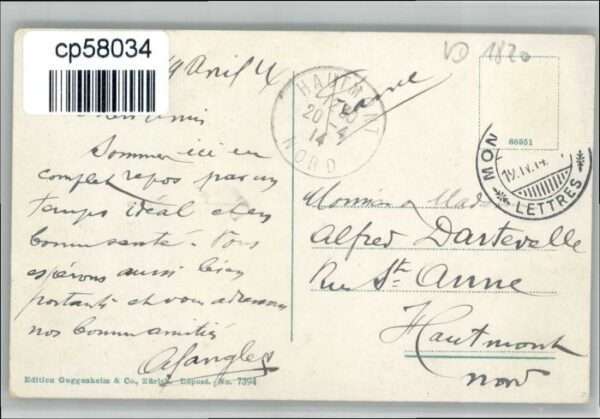 cp58034
VD 1820
19 Avril 14
France
HAUTMONT
20-4
14
NORD
66951
MON
19.IV.14
LETTRES
Sommes ici en
complet repos par un
temps idéal et en
bonne santé. Vous
espérons aussi bien
portants et vous adressons
nos bonnes amitiés
Monsieur & Mad
Alfred Dartevelle
Rue Ste Anne
Hautmont
Nord
Edition Guggenheim & Co., Zürich. Dépost. No. 7394